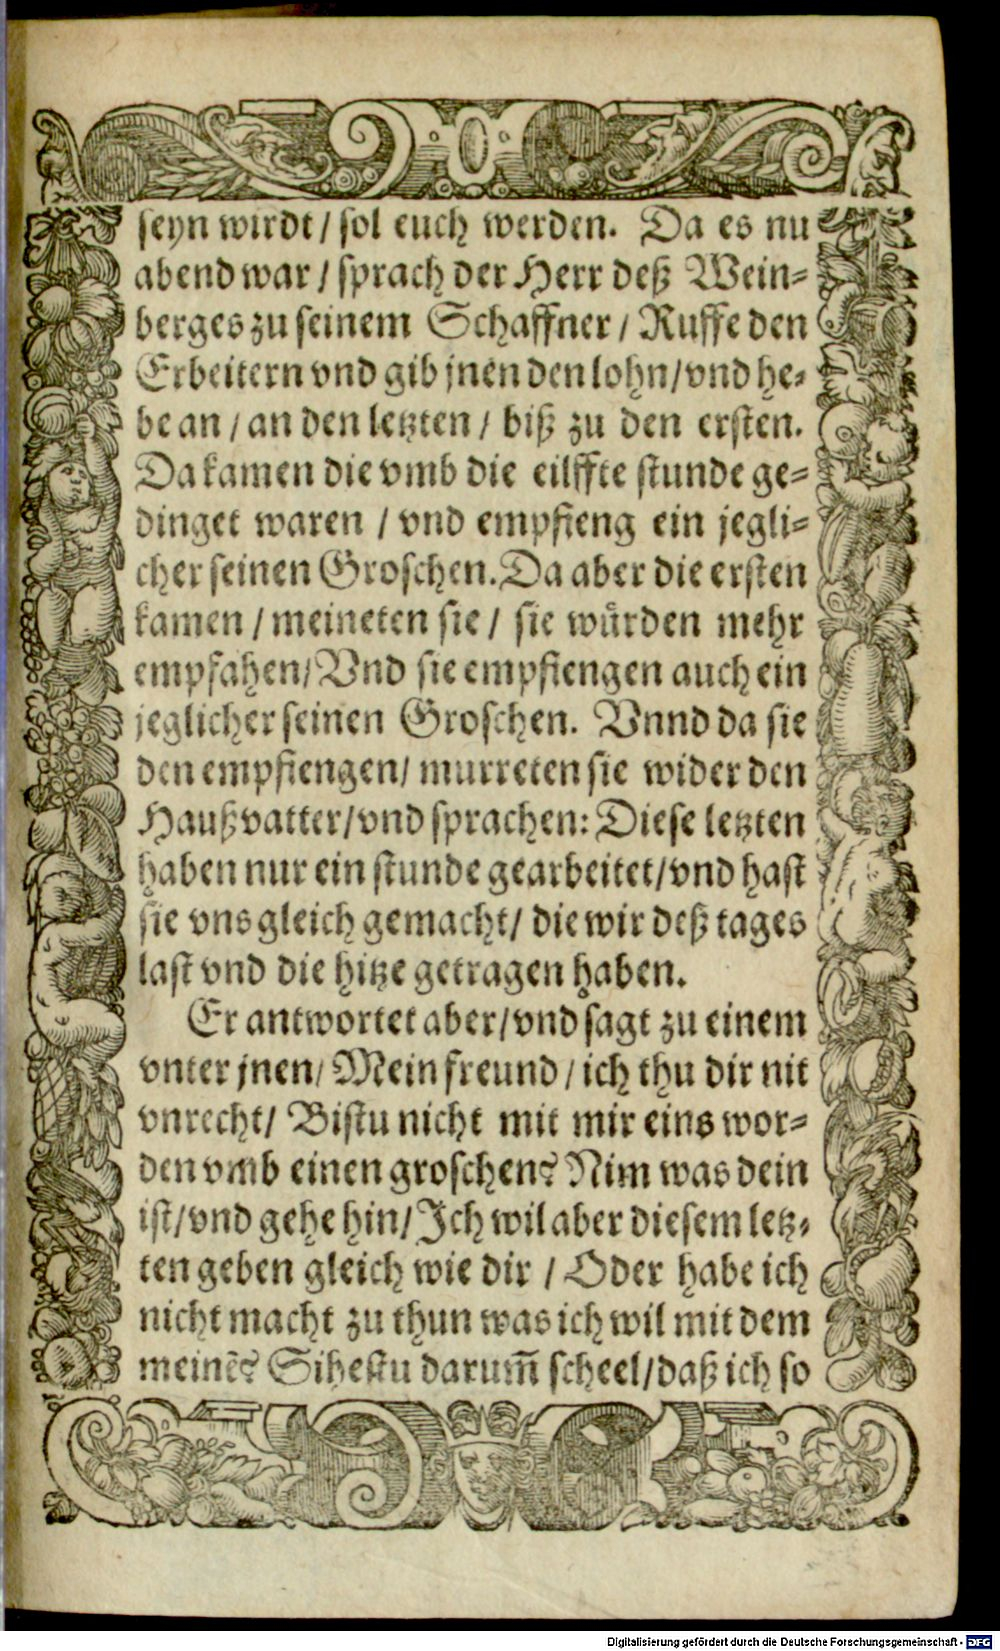 seyn wirdt / sol euch werden. Da es nu
abend war / sprach der Herr deß Wein-
berges zu seinem Schaffner / Ruffe den
Erbeitern vnd gib jnen den lohn / vnd he-
be an / an den letzten / biß zu den ersten.
Da kamen die vmb die eilffte stunde ge-
dinget waren / vnd empfieng ein jegli-
cher seinen Groschen. Da aber die ersten
kamen / meineten sie / sie wůrden mehr
empfahen / Vnd sie empfiengen auch ein
jeglicher seinen Groschen. Vnnd da sie
den empfiengen / murreten sie wider den
Haußvatter / vnd sprachen: Diese letzten
haben nur ein stunde gearbeitet / vnd hast
sie vns gleich gemacht / die wir deß tages
last vnd die hitze getragen haben.
Er antwortet aber / vnd sagt zu einem
vnter jnen / Mein freund / ich thu dir nit
vnrecht / Bistu nicht mit mir eins wor-
den vmb einen groschen? Nim was dein
ist / vnd gehe hin / Ich wil aber diesem letz-
ten geben gleich wie dir / Oder habe ich
nicht macht zu thun was ich wil mit dem
meinẽ? Sihestu darum̃ scheel / daß ich so
Digitalisierung gefördert durch die Deutsche Forschungsgemeinschaft - DFG